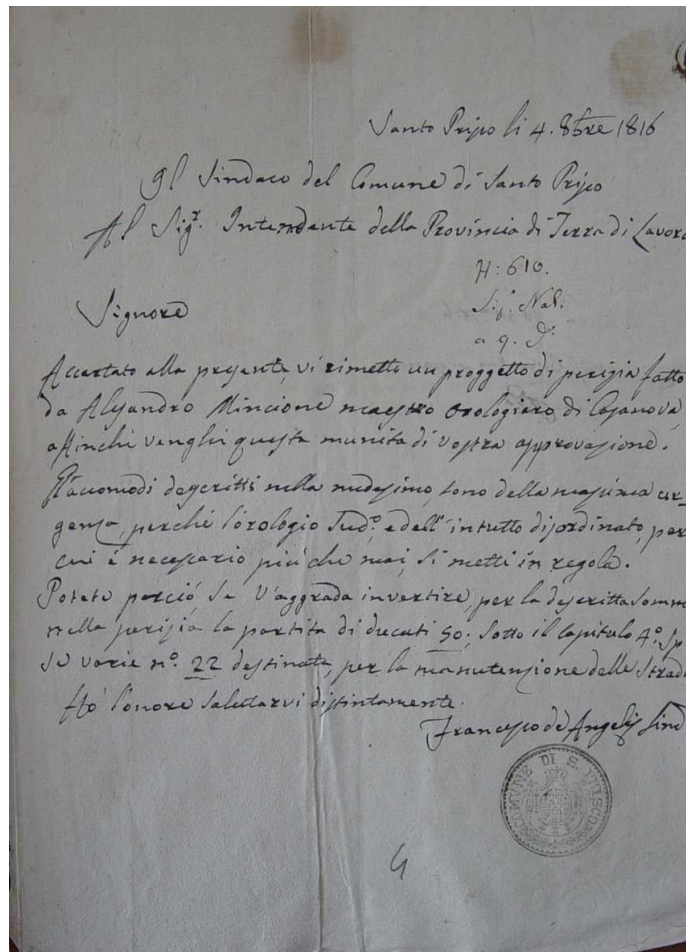 Santo Prisco li 4. 8bre 1816
Il Sindaco del Comune di Santo Prisco
Al Sigr. Intendente della Provincia di Terra di Lavoro
N: 610.
Signore
Accartato alla presente, vi rimetto un proggetto di perizia fatto
da Alesandro Mincione maestro orologiaro di Casanova,
affinchi venghi questa munita di vostra approvazione.
Gl'accomodi descritti nella medesimo, sono della massima ur-
genza, perché l'orologio sudo. e dell'intutto disordinato, per
cui é necessario piú che mai, si metti in regola.
Potete perció se v'aggrada invertire, per la descritta somm
nella perizia la partita di ducati 50; sotto il Capitulo 4o. Sp
se varie no. 22 destinata, per la manutenzione delle Strad
Hó l'onore salutarvi distintamente.
Francesco de Angelis Sind
COMUNE DI S. PRISCO
4